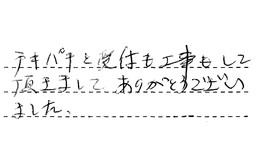 テキパキと受付も工事もして
頂きまして、ありがとうござい
ました、